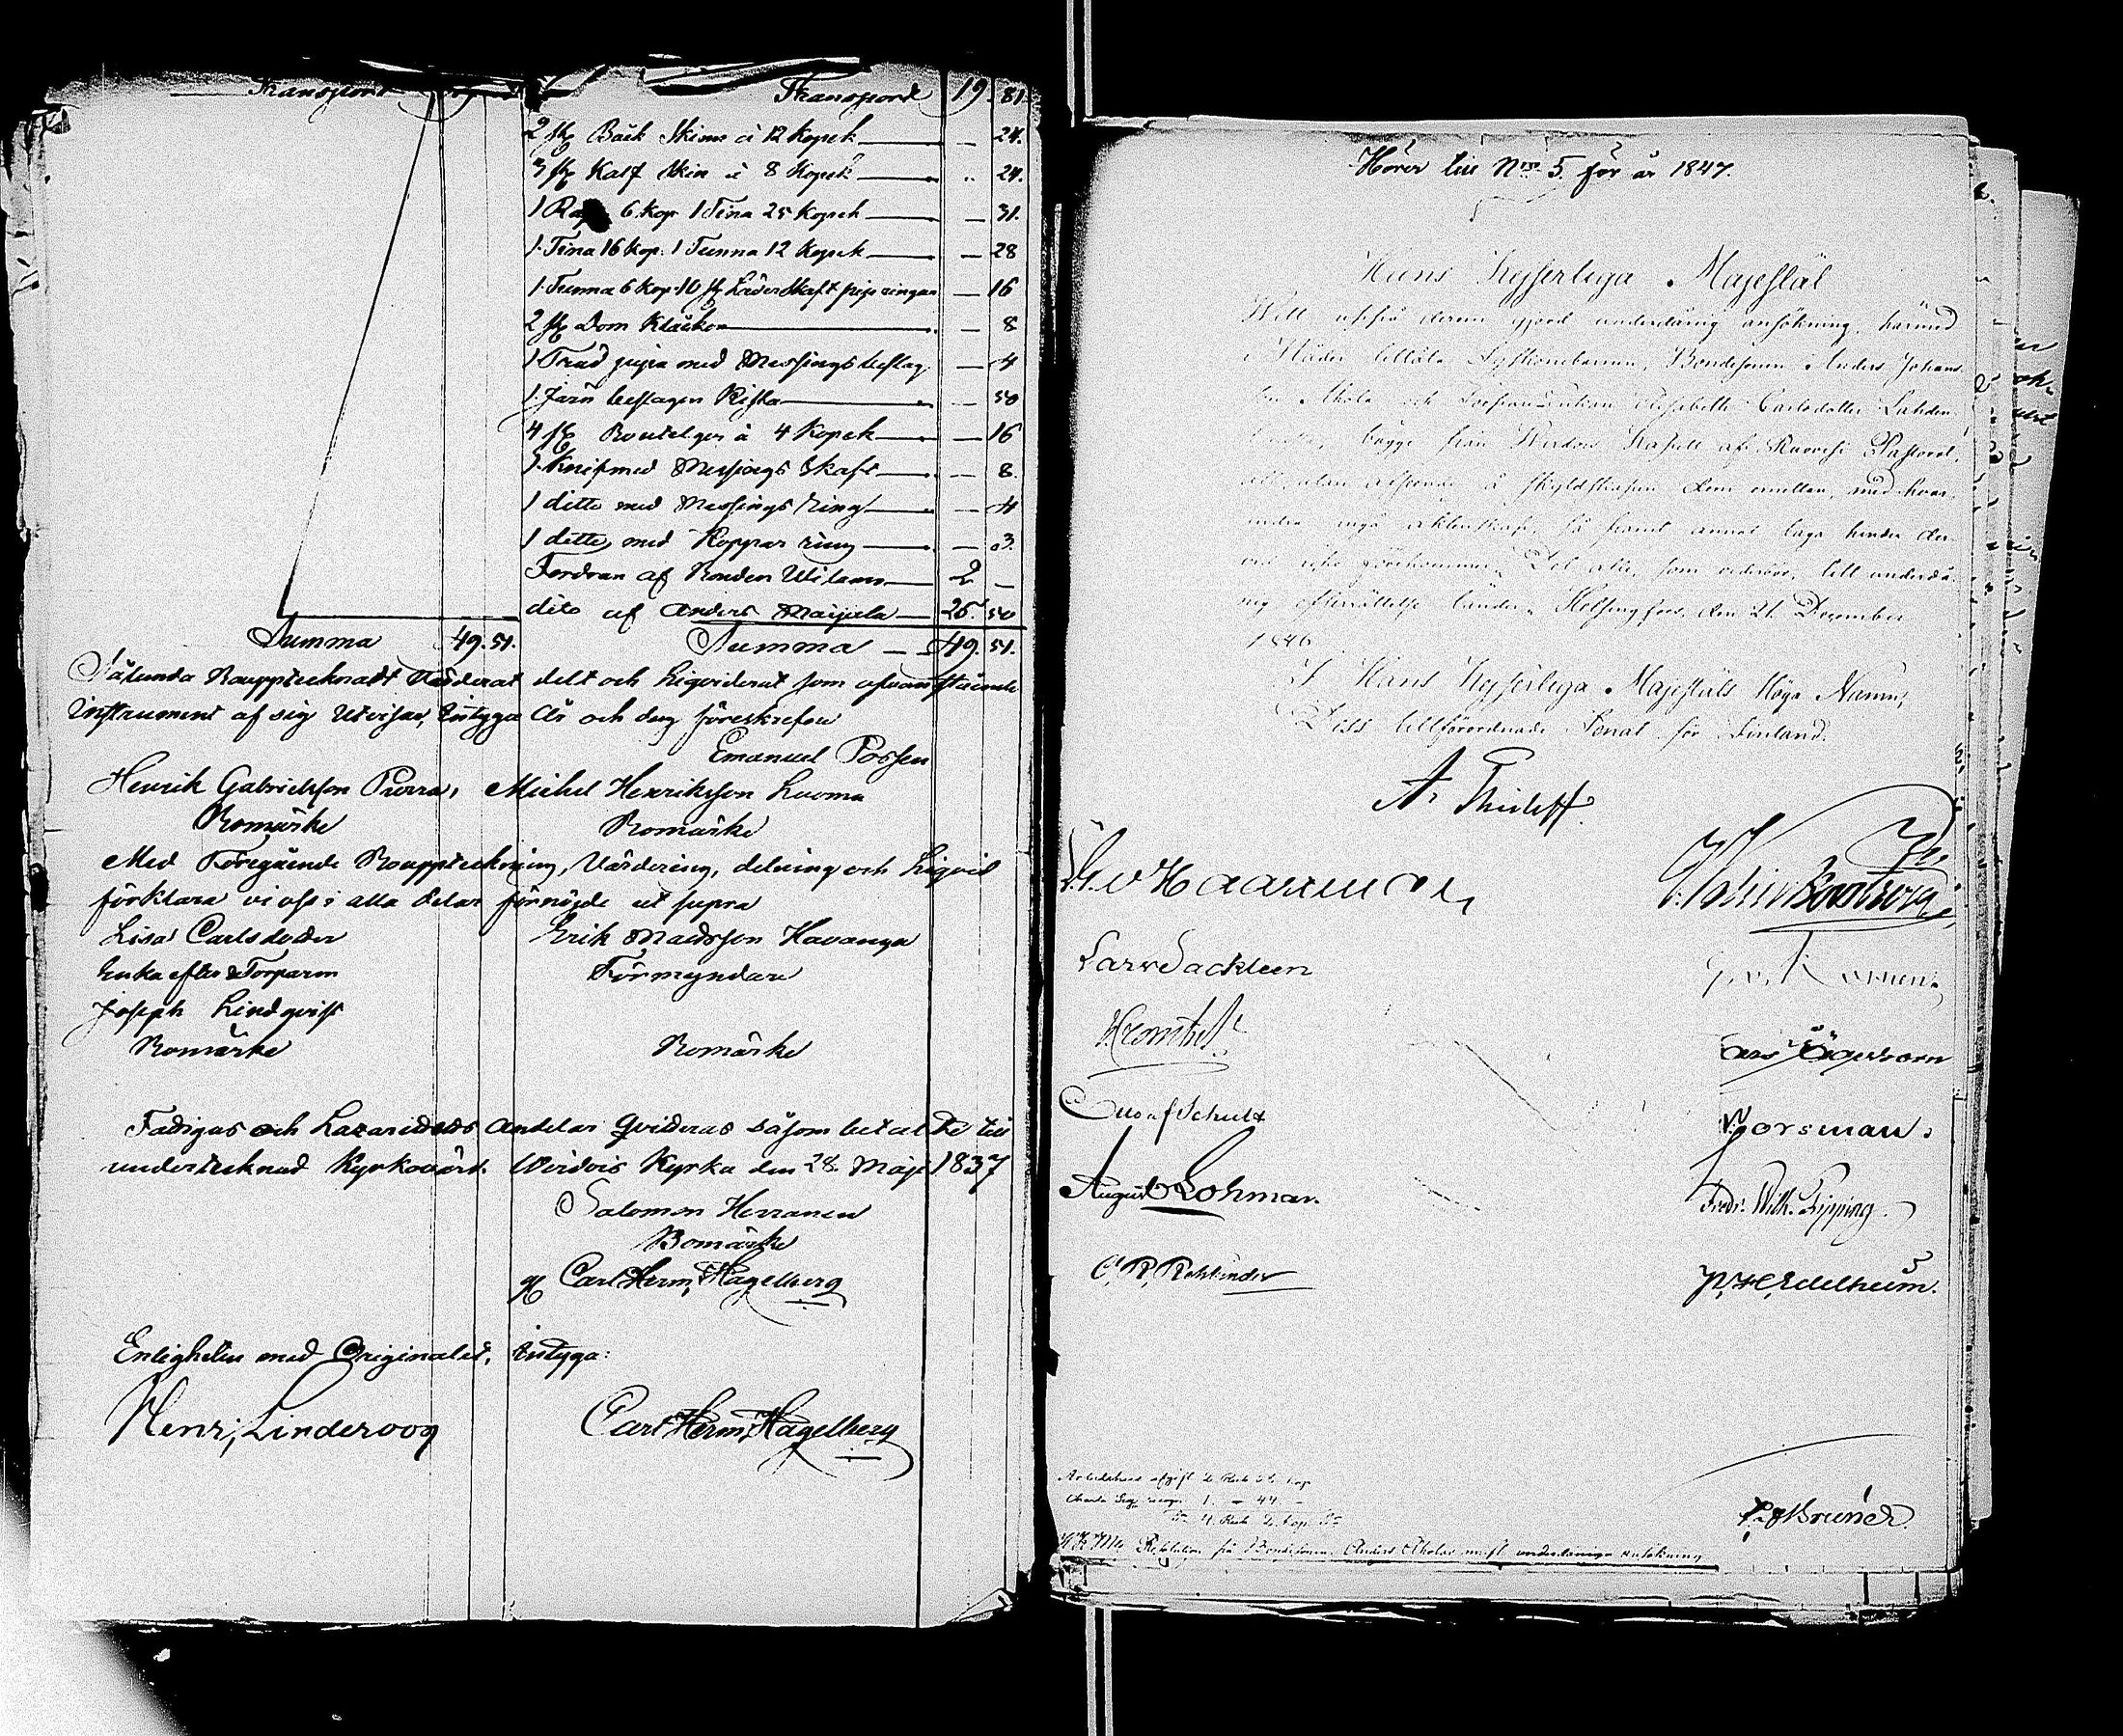 Transport
Transport 19. 81.
2 st Båck Skinn à 12 Kopek — 24.
3 st Kalf Skin à 8 Kopek — 24.
1 6 kop 1 Tina 25 Kopek — 31.
1. Tina 16 kop. 1 Tunna 12 Kopek — 28
1. Tunna 6 kop. 10 st Läder Skaft pip ringar — 16
2 st Dom Kläckor — 8
1 Träd pipa med Messings beslag — 4
1. Järn beslagen Kista — 50
4 st Bouteljer à 4 Kopek — 16
1. Knif med Messings Skaft — 8.
1 ditto med Messings Ring — 4
1 ditto med Koppar ring — 3.
Fordran af Bonden — 2 —
dito af Anders Maijala — 25. 50
Summa 49. 51. Summa — 49. 51.
Sålunda Bouppteknadt Värderat delt och Liqviderat som ofvanstående
Instrument af sig Utvisar, Intyga År och dag föreskrefne
Emanuel Possen
Henrik Gabrielsson Purra, Michel Henriksson Luoma
Bomärke Bomärke
Med Föregående Bouppteckning, Värdering, delning och Liqvid
förklara vi oss i alla delar förnöjde ut supra
Lisa Carlsdotter Erik Mattsson Havanga
Enka efter Torparen Förmyndare
Joseph Lindqvist
Bomärke Bomärke
Fattigas och Lazarettets Andelar Qvitteras såsom betalte till
undertecknad Kyrkovärd. Virdois Kyrka den 28. Maji 1837
Salomon Herranen
Bomärke
Carl Herm. Hagelberg
Enligheten med Originalet, Intyga:
Henr. Linderoog Carl Herm. Hagelberg
Hörer till Nro 5. för år 1847.
Hans Kejserliga Majestät
Will uppå derom gjord underdånig ansökning, härmed
i Nåder tillåta Syskonebarnen, Bondesonen Anders Johans-
son Ahola och Torpare Enkan Elisabetha Carlsdotter Lahden-
bägge från Wirdois Kapell af Ruovesi Pastorat,
att, utan afseende å skyldskapen dem emellan, med hvar-
andra ingå äktenskap, så framt annat laga hinder der-
vid icke förekommer. Det alle, som vederbör, till underdå-
nig efterrättelse länder. Helsingfors, den 21. December
1846.
I Hans Kejserliga Majestäts Höga Namn,
Dess tillförordnade Senat för Finland.
A. Thesleff.
L. v Haartman
Lars Sackleen
Gust af Schultz
August Lohman. Forsman.
Fredr. Wilh. Pipping.
C. R. Rehbinder P. H. Edelheim.
Arbetshus afgift 2. Rub. Kop.
Charta Sig. recogn. 1. — 44 —
4. Rub. 2. kop. Sr
C. Brunér.
H. K. M:s Resolution på Bondesonen Anders Aholas m. fl. underdåniga ansökning